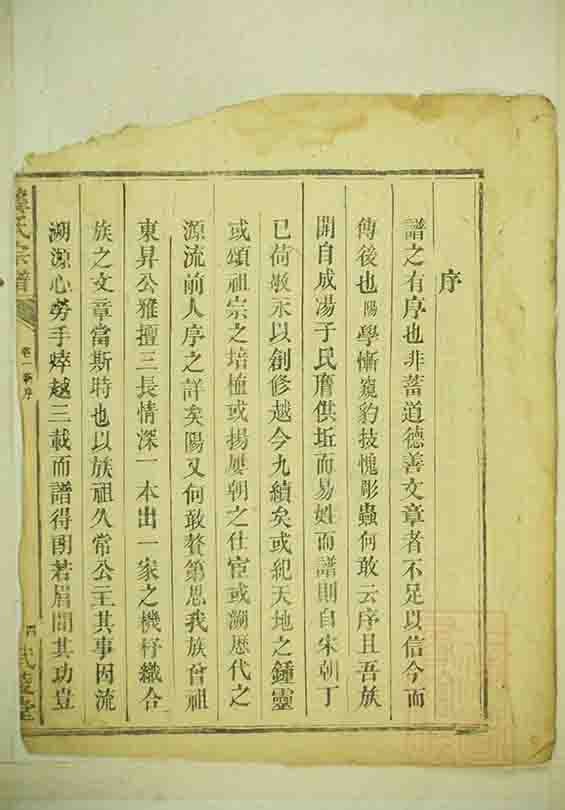 序
譜之有序也非蓄道德善文章者不足以信今而
傳後也陽學慚窺豹技愧彫蟲何敢云序且吾族
開自成湯于民膺供坵而易姓而譜則自宋朝丁
已荷敬承以創修越今九續矣或紀天地之鍾靈
或頌祖宗之培植或揚屢朝之仕宦或溯歷代之
源流前人序之詳矣陽又何敢贅第思我族曾祖
東昇公雅擅三長情深一本出一家之機杼織合
族之文章當斯時也以族祖久常公主其事因流
溯源心勞手瘁越三載而譜得朗若眉間其功豈
氏宗譜
卷一 序
四
武陵堂